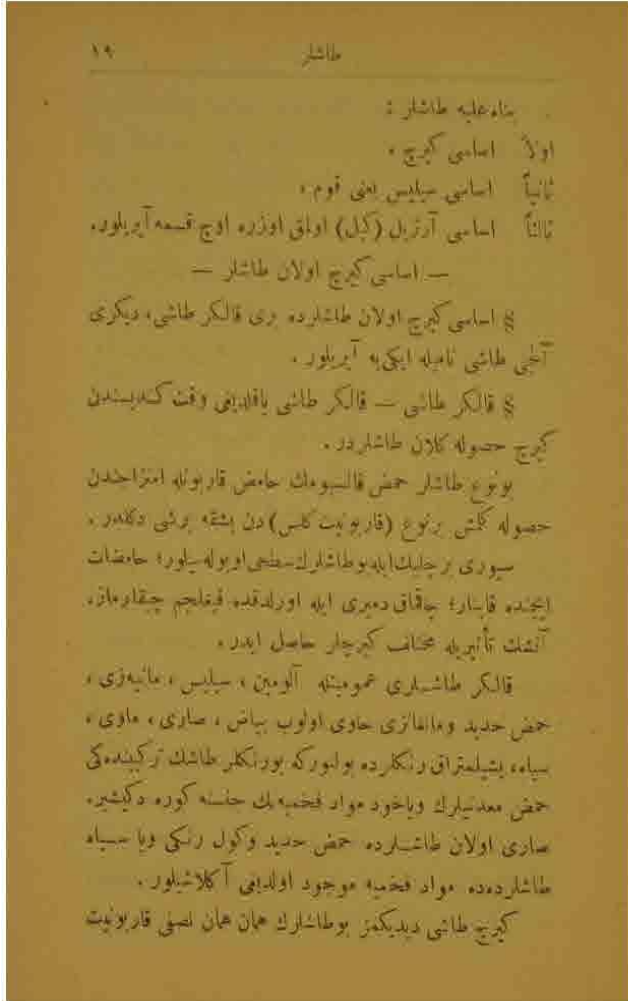 طاشلر ١٩
بناء علیه طاشلر :
اولاً اساسى كیرج ،
ثانیاً اساسى سیلیس یعنى قوم ،
ثالثاً اساسى آرژیل (كیل) اولمق اوزره اوچ قسمه آیریلور.
— اساسى كیرج اولان طاشلر —
§ اساسى كیرج اولان طاشلرده برى قالكر طاشى، دیكرى
آلچى طاشى نامیله ایكى‌یه آیریلور .
§ قالكر طاشى — قالكر طاشى یاقلدیغى وقت كندیسندن
كیرج حصوله كلان طاشلردر .
بونوع طاشلر حمض قالسیومك حامض قاربونله امتزاجندن
حصوله كلمش برنوع (قاربونیت كلس) دن بشقه برشى دكلدر .
سیورى برچلیك ایله بو طاشلرك سطحى اویوله‌بیلور؛ حامضات
ایچنده قاینار؛ چاقماق دمیرى ایله اورلدقده قیغلجم چیقارماز.
آتشك تأثیریله مختلف كیرجلر حاصل ایدر .
قالكر طاشلرى عمومیتله آلومین ، سیلیس ، مانیه‌زى ،
حمض حدید ومانغانزى حاوى اولوب بیاض ، صارى ، ماوى ،
سیاه، یشیلمتراق رنكلرده بولنوركه بورنكلر طاشك تركیبنده‌كى
حمض معدنیلرك ویاخود مواد فحمیه‌نك جنسنه كوره دكیشیر.
صارى اولان طاشلرده حمض حدید وكول رنكى ویا سیاه
طاشلرده‌ده مواد فحمیه موجود اولدیغى آكلاشیلور .
كیرج طاشى دیدیكمز بوطاشلرك همان همان نصفى قاربونیت